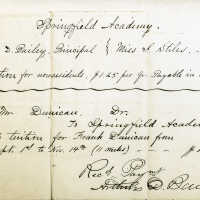 Springfield Academy.
D. Bailey, Principal { Miss S. Stiles,
tion for nonresidents, $1.25 per Qr. Payable in
Wm Dunican, Dr.
To Springfield Academ
tuition for Frank Dunican from
pt. 1st to Nov. 14th
Rec'd Paym
D.